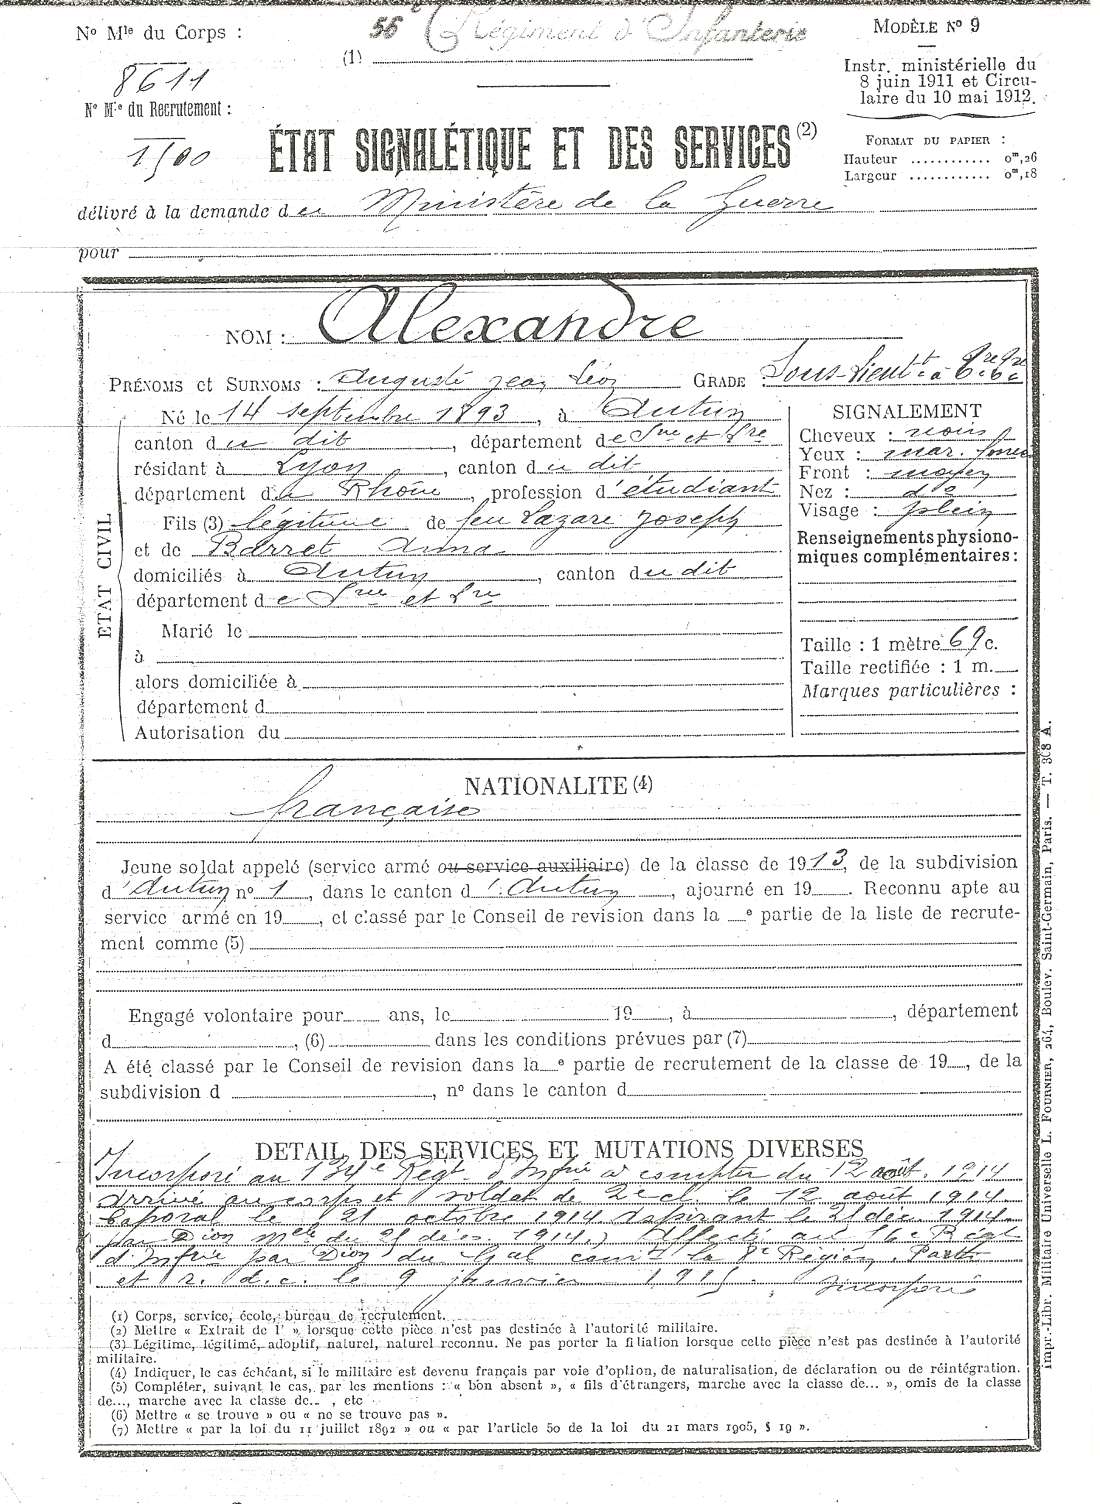 No Mle du Corps :
8611
No Mle du Recrutement :
1500
56e Régiment d'Infanterie
(1)
MODÈLE No 9
Instr. ministérielle du
8 juin 1911 et Circu-
laire du 10 mai 1912.
FORMAT DU PAPIER :
Hauteur ............ 0m,26
Largeur ............ 0m,18
ÉTAT SIGNALÉTIQUE ET DES SERVICES (2)
délivré à la demande du Ministère de la Guerre
pour
NOM : Alexandre
PRÉNOMS et SURNOMS : Auguste Jean Léon GRADE : Sous-Lieutt à
ETAT CIVIL
Né le 14 septembre 1893, à Autun
canton du dit, département de Sne et Lre
résidant à Lyon, canton du dit
département du Rhône, profession d'étudiant
Fils (3) légitime de feu Lazare Joseph
et de Barret Anna
domiciliés à Autun, canton du dit
département de Sne et Lre
Marié le
à
alors domiciliée à
département d
Autorisation du
SIGNALEMENT
Cheveux : noirs
Yeux : mar. foncé
Front : moyen
Nez : do
Visage : plein
Renseignements physiono-
miques complémentaires :
Taille : 1 mètre 69 c.
Taille rectifiée : 1 m.
Marques particulières :
NATIONALITE (4)
française
Jeune soldat appelé (service armé ou service auxiliaire) de la classe de 1913, de la subdivision
d'Autun no 1, dans le canton d'Autun, ajourné en 19 . Reconnu apte au
service armé en 19 , et classé par le Conseil de revision dans la e partie de la liste de recrute-
ment comme (5)
Engagé volontaire pour ans, le 19 , à , département
d , (6) dans les conditions prévues par (7)
A été classé par le Conseil de revision dans la e partie de recrutement de la classe de 19 , de la
subdivision d , no dans le canton d
DETAIL DES SERVICES ET MUTATIONS DIVERSES
Incorporé au 134e Régt d'Infrie à compter du 12 août 1914
Arrivé au corps et soldat de 2e cl. le 12 août 1914
Caporal le 21 octobre 1914 Aspirant le 21 déc. 1914
par Dion Mlle du 21 déc. 1914.) Affecté au 16e Régt
d'Infrie par Dion du Gal comt la 8e Région. Parti
et r. d. c. le 9 janvier 1915. Incorporé
(1) Corps, service, école, bureau de recrutement.
(2) Mettre « Extrait de l' » lorsque cette pièce n'est pas destinée à l'autorité militaire.
(3) Légitime, légitimé, adoptif, naturel, naturel reconnu. Ne pas porter la filiation lorsque cette pièce n'est pas destinée à l'autorité
militaire.
(4) Indiquer, le cas échéant, si le militaire est devenu français par voie d'option, de naturalisation, de déclaration ou de réintégration.
(5) Compléter, suivant le cas, par les mentions : « bon absent », « fils d'étrangers, marche avec la classe de... », omis de la classe
de..., marche avec la classe de... , etc
(6) Mettre « se trouve » ou « ne se trouve pas ».
(7) Mettre « par la loi du 11 juillet 1892 » ou « par l'article 50 de la loi du 21 mars 1905, § 19 ».
Impr.-Libr. Militaire Universelle L. FOURNIER, 264, Boulev. Saint-Germain, Paris. — T. 308 A.